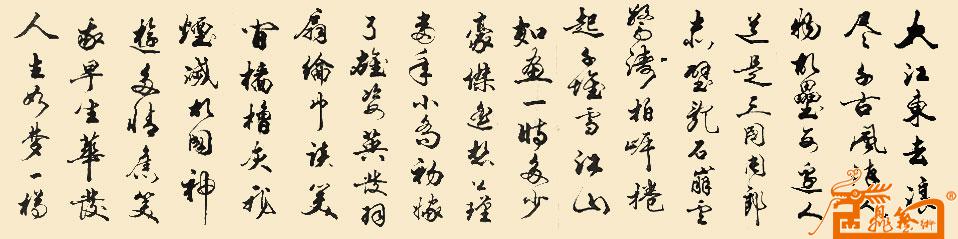 大江東去浪
尽千古風流人
物故壘西邊人
道是三國周郎
赤壁亂石崩雲
驚濤拍岸捲
起千堆雪江山
如畫一時多少
豪傑遥想公瑾
當年小喬初嫁
了雄姿英發羽
扇綸巾談笑
間檣櫓灰飛
煙滅故國神
遊多情應笑
我早生華發
人生如夢一樽